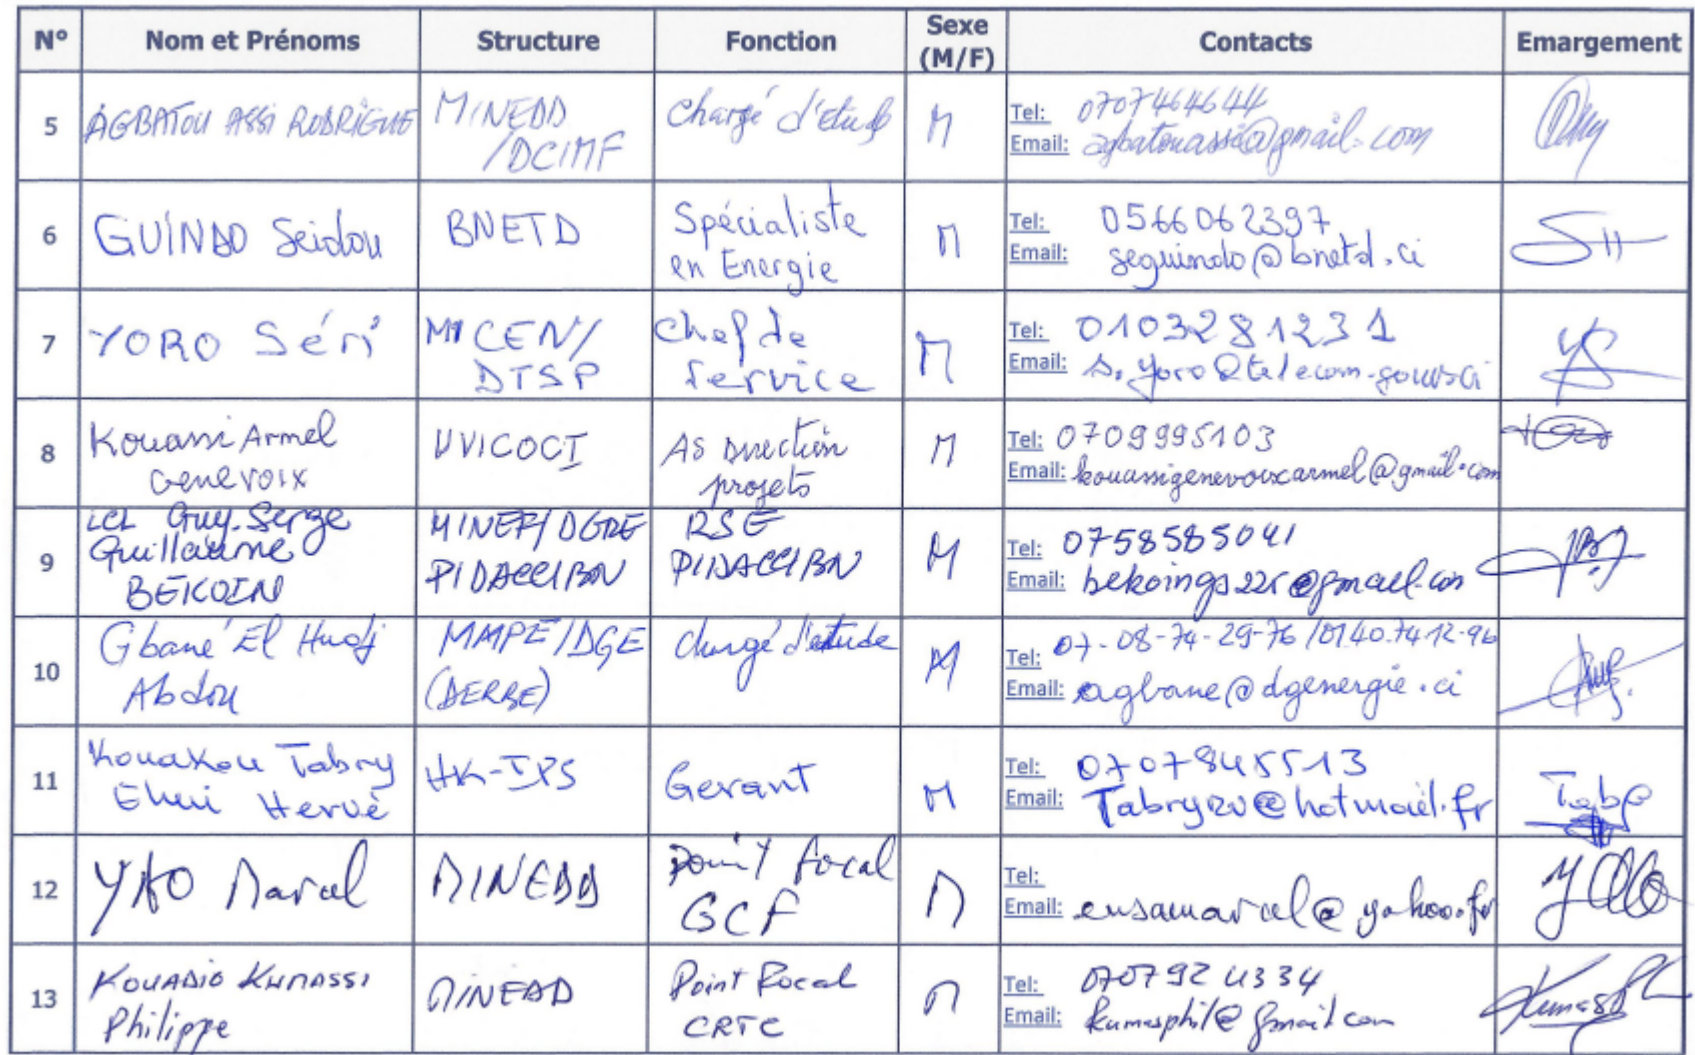 N° Nom et Prénoms Structure Fonction Sexe (M/F) Contacts Emargement
5 AGBATOU ASSI RODRIGUE MINEDD /DCIMF Chargé d'étude M Tel: 0707464644
Email: agbatouassi@gmail.com
6 GUINDO Seidou BNETD Spécialiste en Energie M Tel: 0566062397
Email: seguindo@bnetd.ci
7 YORO Séri MICEN/ DTSP Chef de Service M Tel: 0103281231
Email: s.yoro@telecom.gouv.ci
8 Kouassi Armel Genevoix UVICOCI As Direction projets M Tel: 0709995103
Email: kouassigenevoixarmel@gmail.com
9 Guy-Serge Guillaume BEKOIN MINEF/DGRE PIDACC/BN RSE PIDACC/BN M Tel: 0758585041
Email: bekoings225@gmail.com
10 Gbané El Hadj Abdou MMPE/DGE Chargé d'étude M Tel: 07-08-74-29-76 /01.40.74.12.96
Email: agbane@dgenergie.ci
11 Kouakou Tabry Ehui Hervé HK-IPS Gerant M Tel: 0707845513
Email: Tabry2v@hotmail.fr
12 YAO Marcel MINEDD Point focal GCF M Tel:
Email: ensamarcel@yahoo.fr
13 KOUADIO KUMASSI Philippe MINEDD Point Focal CRTC M Tel: 0707924334
Email: kumasphil@gmail.com